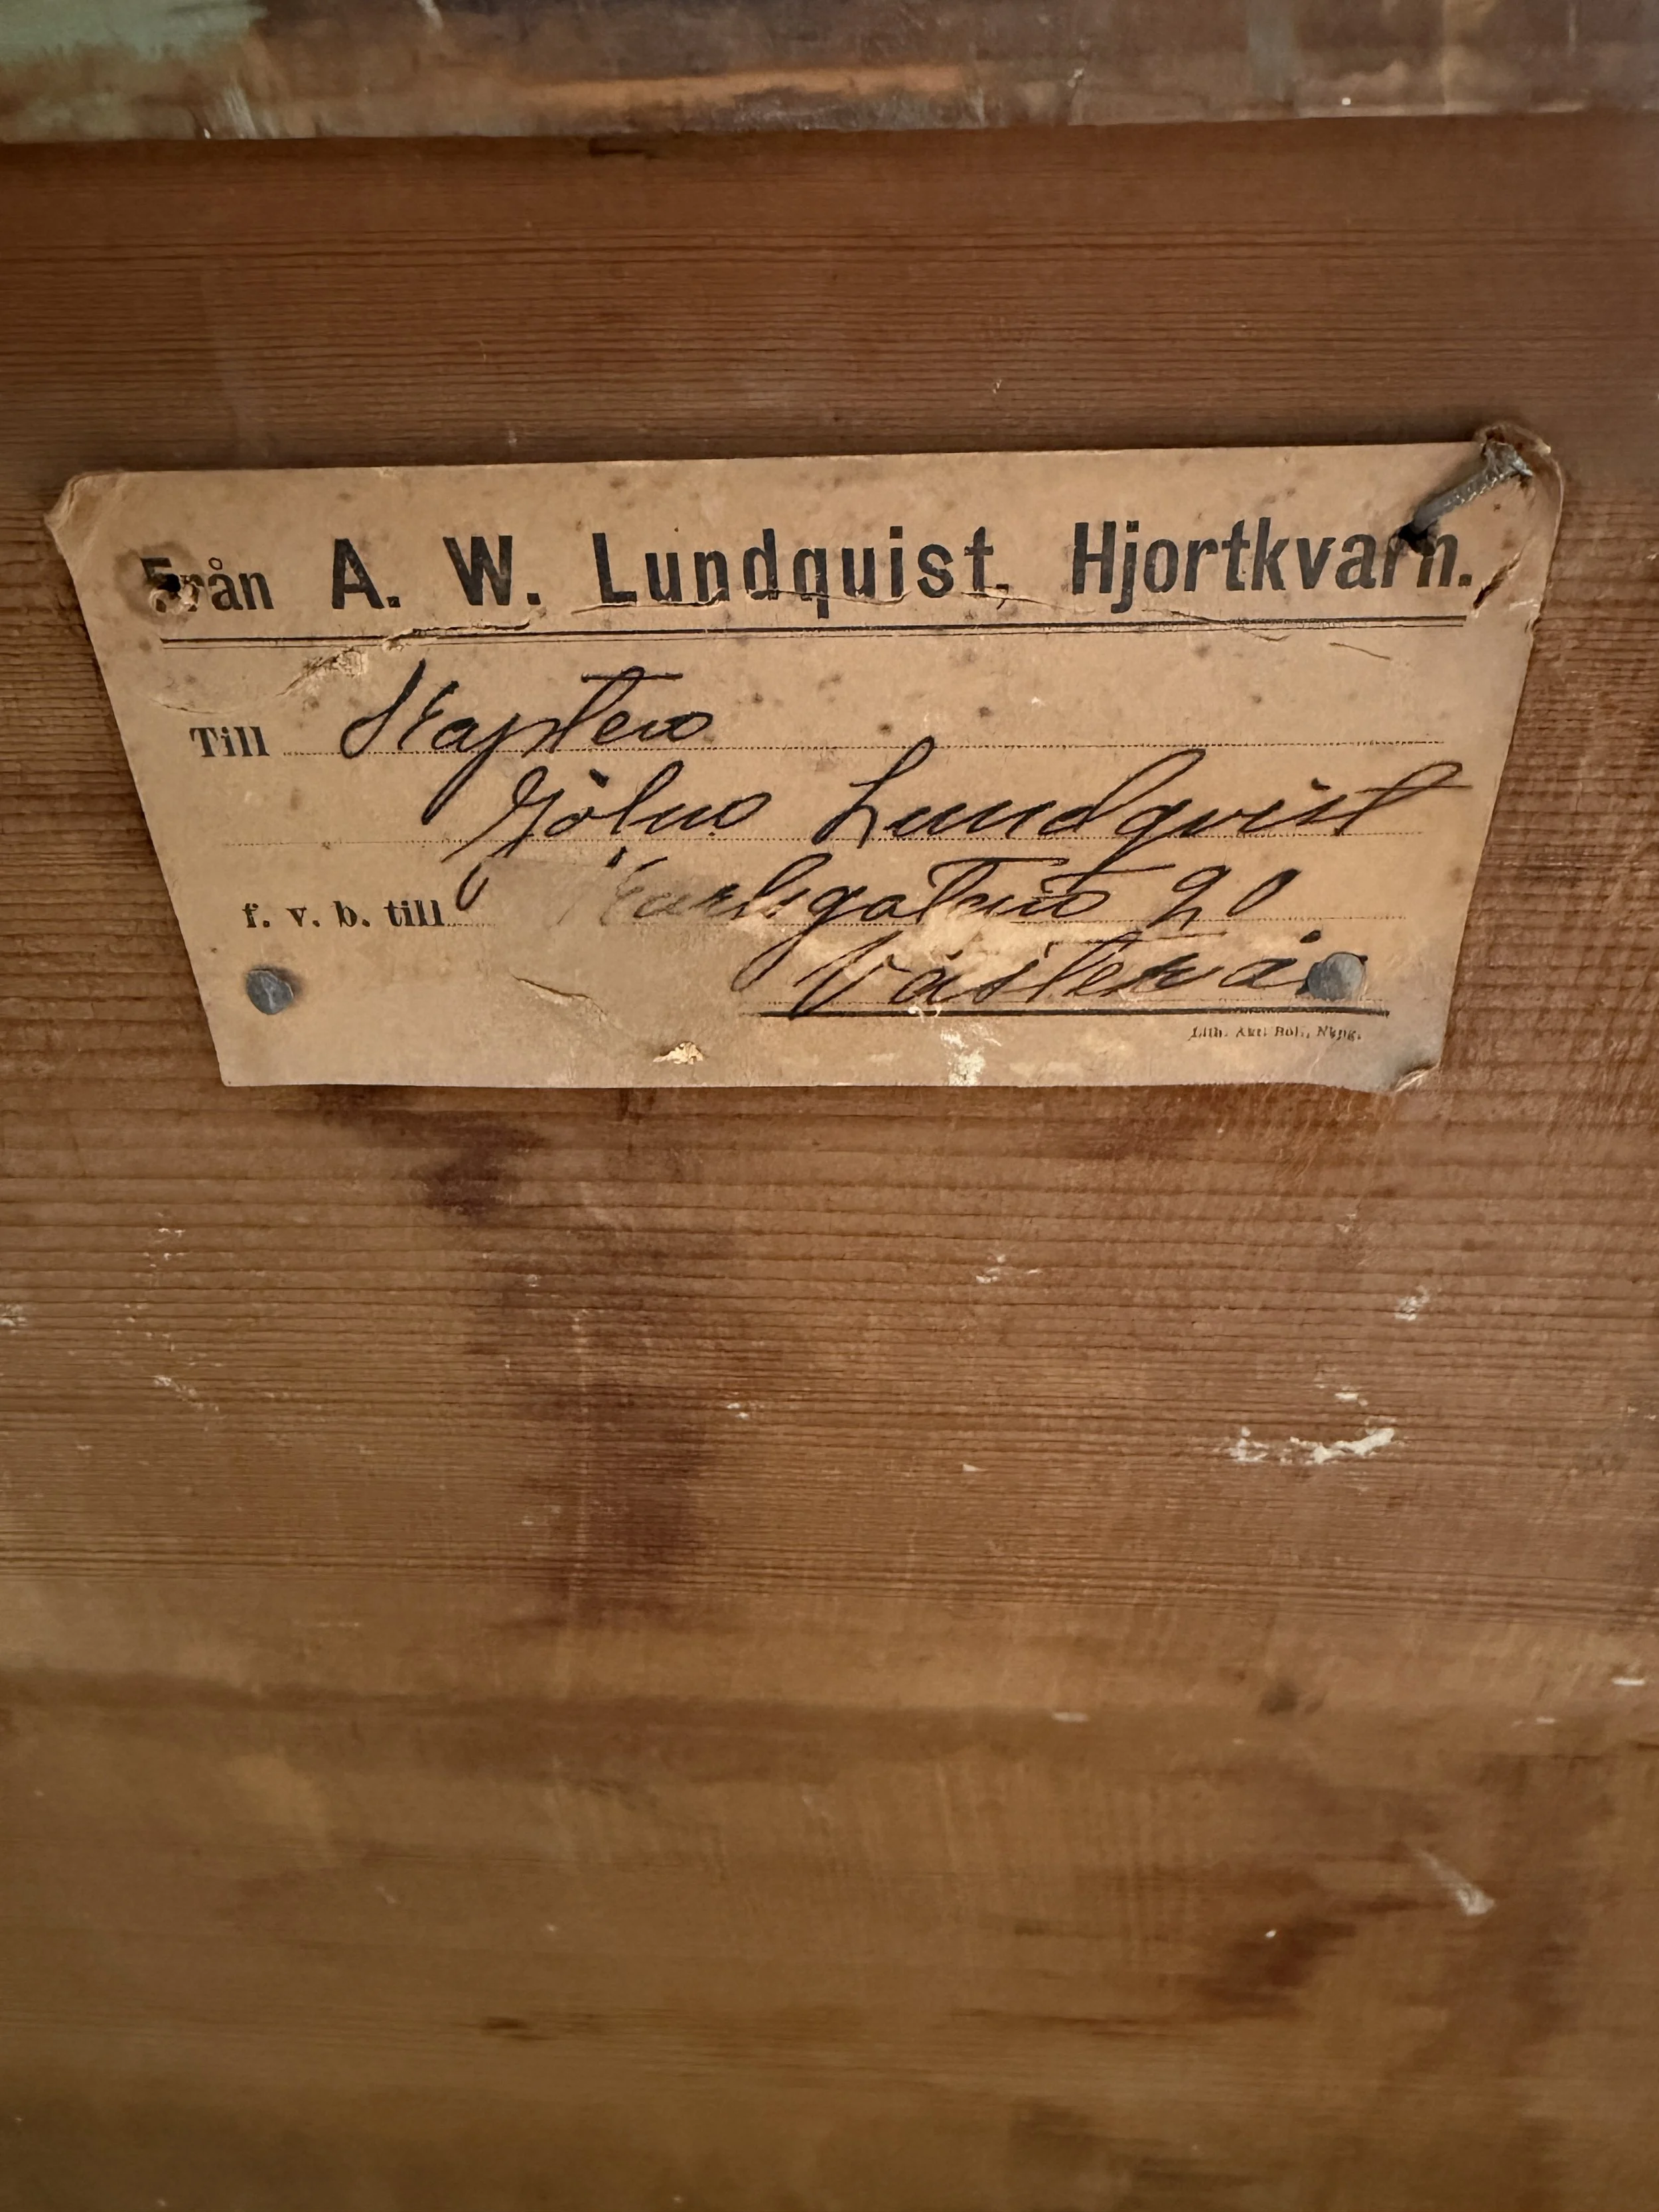 Från A. W. Lundquist, Hjortkvarn.
Till Kapten
Lundqvist
f. v. b. till Karlsgatan 20
Västerås
Lith. Akt. Bol., Nkpg.